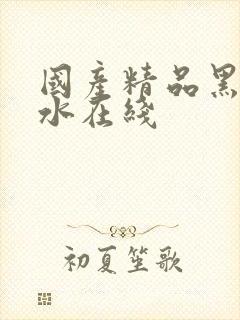 國産精品黑
水在綫
初夏笙歌